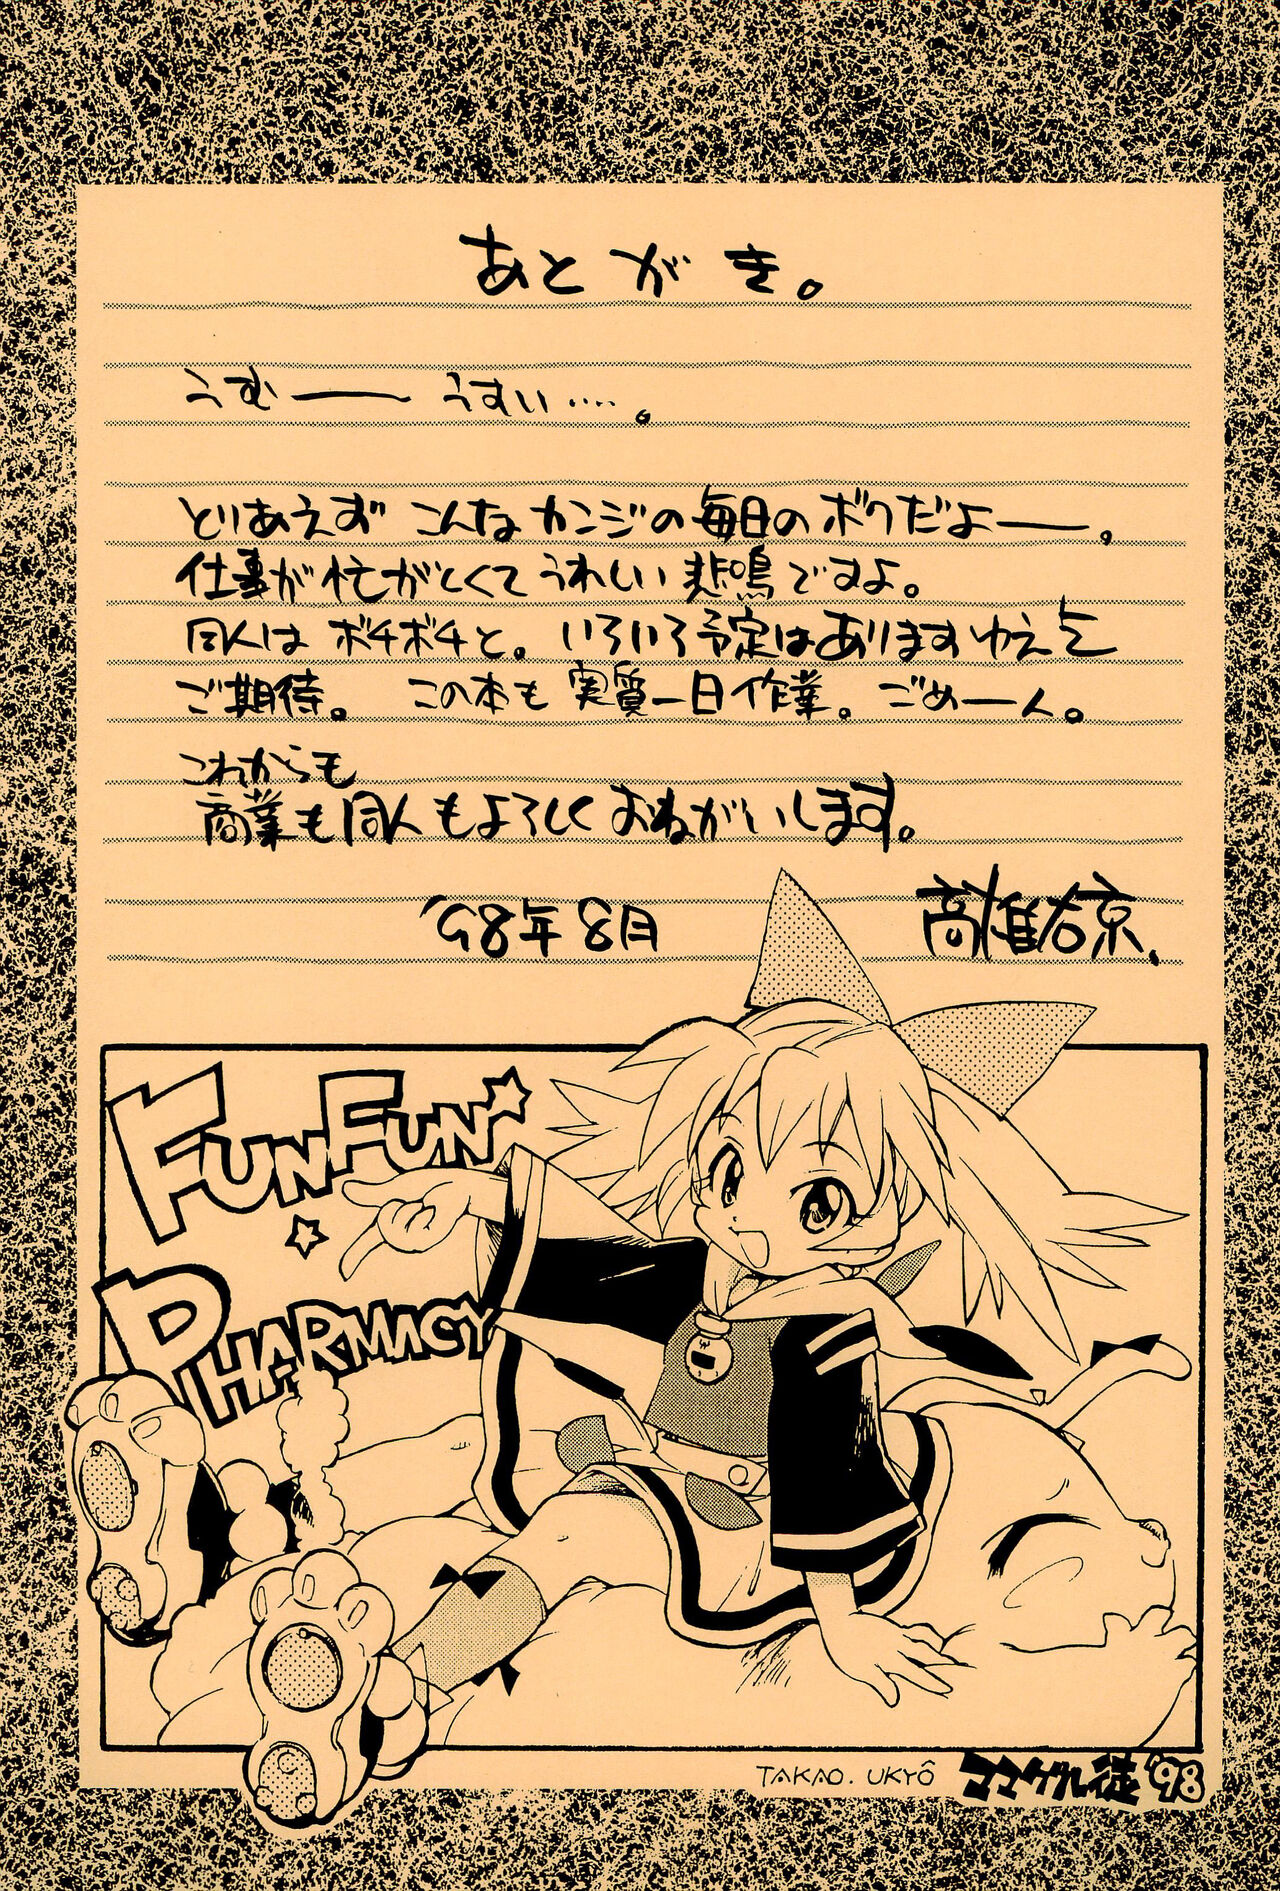 あとがき。
うむー うすい‥‥。
とりあえず こんなカンジの毎日のボクだよー。
仕事が忙がしくてうれしい悲鳴ですよ。
同人はボチボチと。いろいろ予定はありますゆえに
ご期待。 この本も実質一日作業。ごめーん。
これからも
商業も同人もよろしくおねがいします。
'98年8月 高雄右京
FUN FUN
PHARMACY
TAKAO. UKYÔ ココマグル徒'98